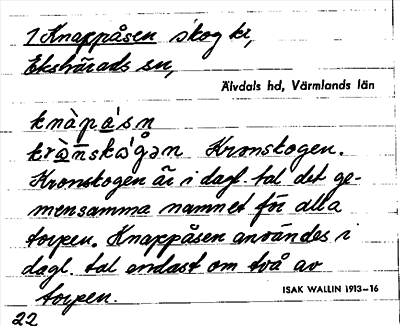 1 Knappåsen skog kr,
Ekshärads sn,
Älvdals hd, Värmlands län
knàpa̲ʹsn
krànskωʹgən Kronskogen.
Kronskogen är i dagl. tal det ge-
mensamma namnet för alla
torpen. Knappåsen användes i
dagl. tal endast om två av
torpen.
ISAK WALLIN 1913–16
22